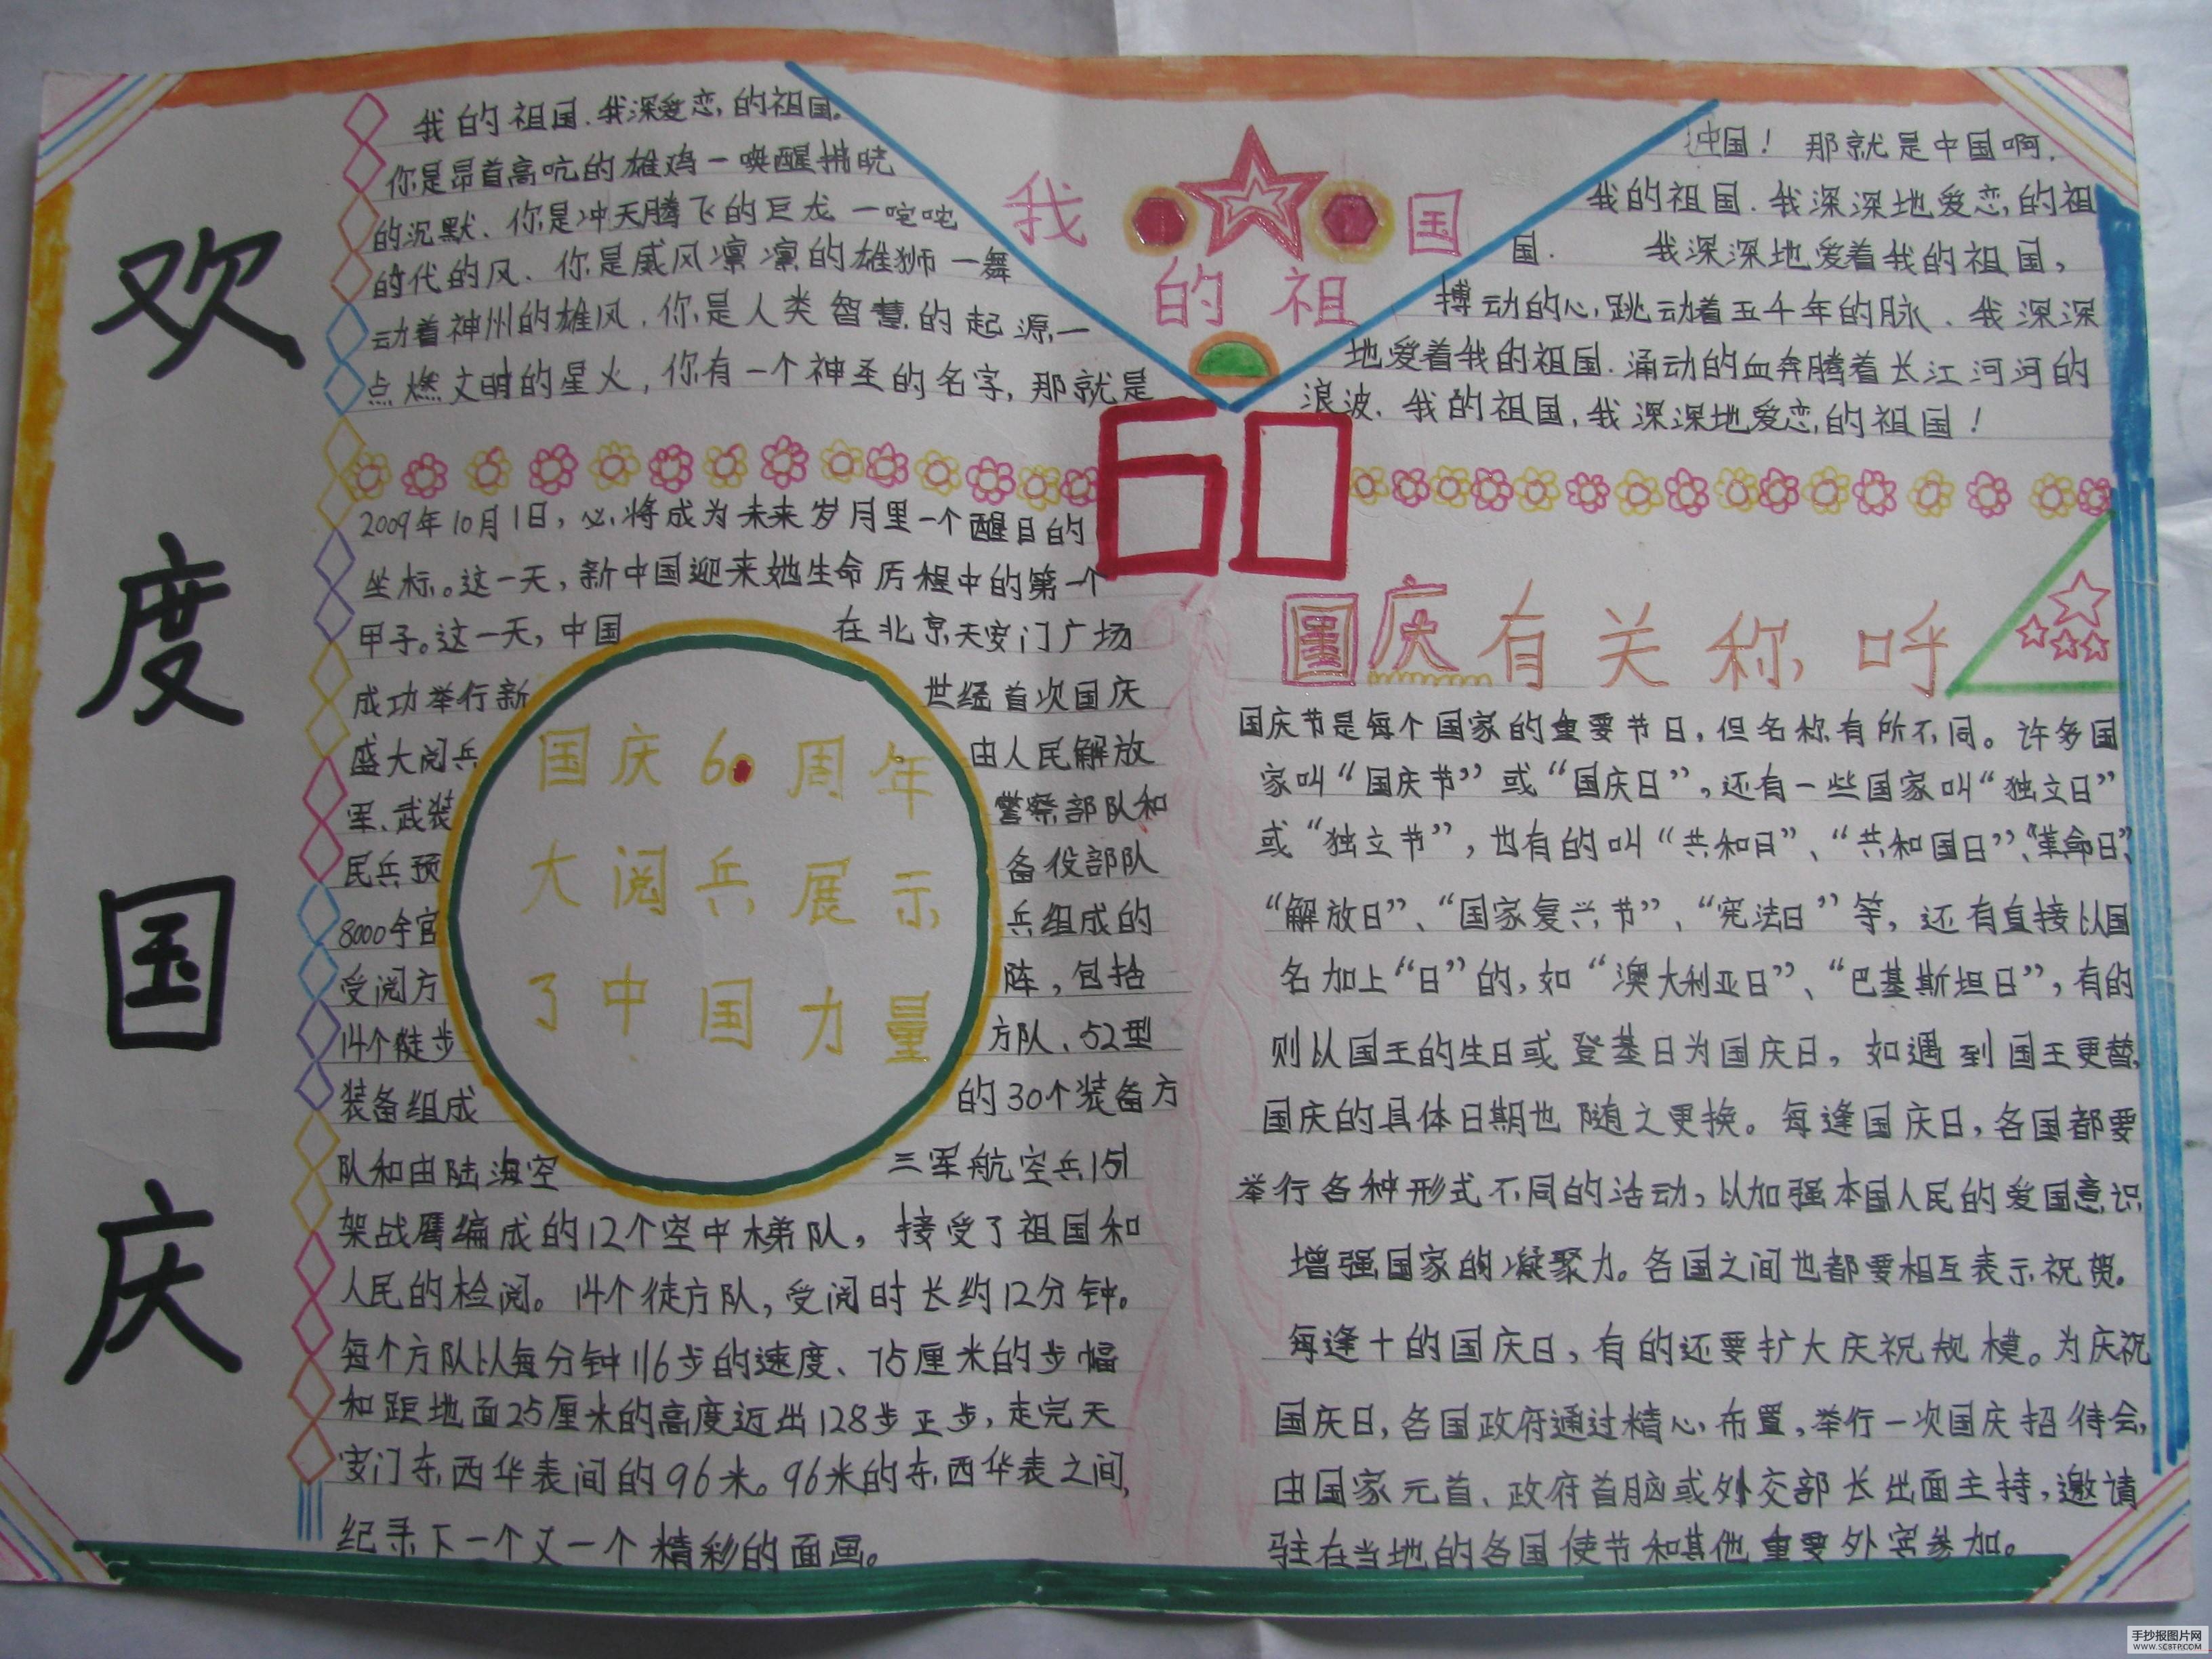 欢度国庆
我的祖国.我深爱恋的祖国。
你是昂首高吭的雄鸡一唤醒拂晓
的沉默、你是冲天腾飞的巨龙一咤咤
时代的风、你是威风凛凛的雄狮一舞
动着神州的雄风,你是人类智慧的起源,一
点燃文明的星火,你有一个神圣的名字,那就是
我 国
的祖
中国!那就是中国啊.
我的祖国.我深深地爱恋的祖
国. 我深深地爱着我的祖国,
搏动的心,跳动着五千年的脉、我深深
地爱着我的祖国.涌动的血奔腾着长江河河的
浪波、我的祖国,我深深地爱恋的祖国!
60
2009年10月1日,必将成为未来岁月里一个醒目的
坐标。这一天,新中国迎来她生命历程中的第一个
甲子。这一天,中国 在北京天安门广场
成功举行新 世纪首次国庆
盛大阅兵 由人民解放
军、武装 警察部队和
民兵预 备役部队
8000余官 兵组成的
受阅方 阵,包括
14个徒步 方队、52型
装备组成 的30个装备方
队和由陆海空 三军航空兵151
架战鹰编成的12个空中梯队,接受了祖国和
人民的检阅。14个徒方队,受阅时长约12分钟。
每个方队以每分钟116步的速度、75厘米的步幅
和距地面25厘米的高度迈出128步正步,走完天
安门东西华表间的96米。96米的东西华表之间,
纪录下一个又一个精彩的面画。
国庆60周年
大阅兵展示
了中国力量
国庆有关称呼
国庆节是每个国家的重要节日,但名称有所不同。许多国
家叫“国庆节”或“国庆日”,还有一些国家叫“独立日”
或“独立节”,也有的叫“共和日”、“共和国日”、“革命日”、
“解放日”、“国家复兴节”、“宪法日”等,还有直接以国
名加上“日”的,如“澳大利亚日”、“巴基斯坦日”,有的
则以国王的生日或登基日为国庆日,如遇到国王更替,
国庆的具体日期也随之更换。每逢国庆日,各国都要
举行各种形式不同的活动,以加强本国人民的爱国意识,
增强国家的凝聚力。各国之间也都要相互表示祝贺。
每逢十的国庆日,有的还要扩大庆祝规模。为庆祝
国庆日,各国政府通过精心布置,举行一次国庆招待会,
由国家元首、政府首脑或外交部长出面主持,邀请
驻在当地的各国使节和其他重要外宾参加。
手抄报图片网
WWW.SCBTP.COM